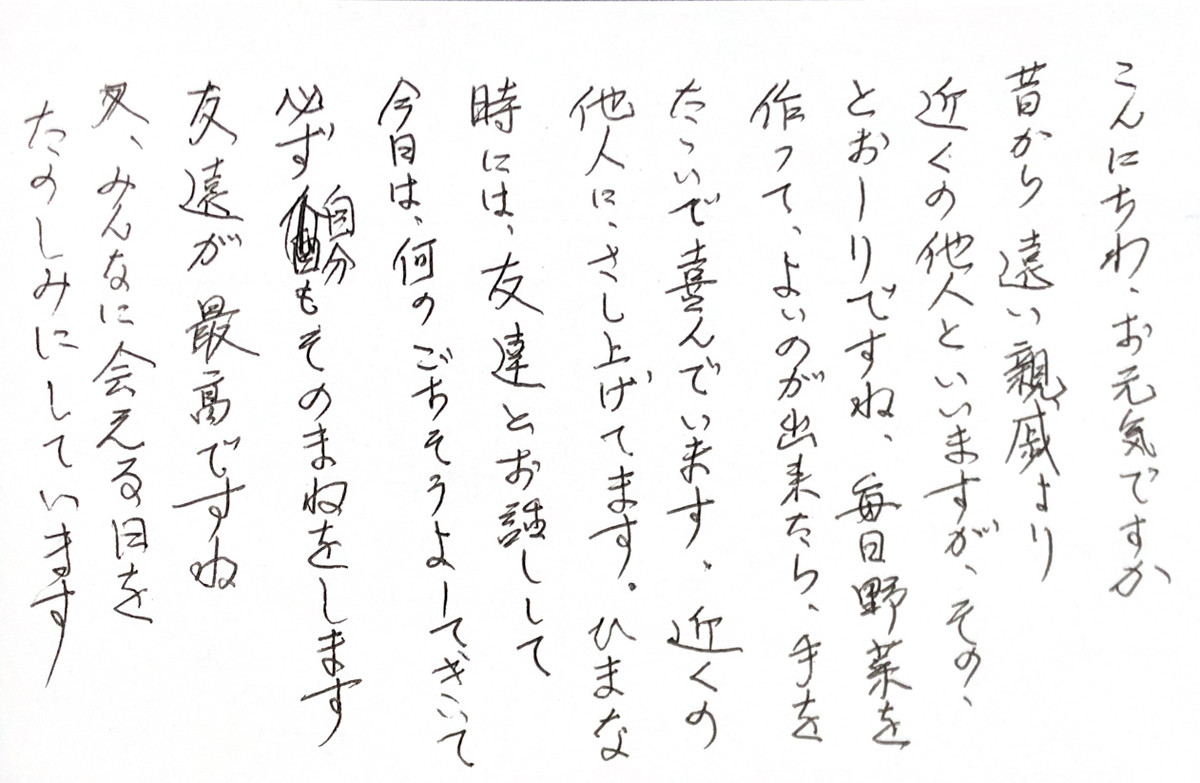 こんにちわ、お元気ですか
昔から遠い親戚より
近くの他人といいますが、その、
とおーりですね、毎日野菜を
作って、よいのが出来たら、手を
たゝいで喜んでいます、近くの
他人に、さし上げてます。ひまな
時には、友達とお話しして
今日は、何のごちそうよーてきいて
必ず自分もそのまねをします
友遠が最高ですね
又、みんなに会える日を
たのしみにしています